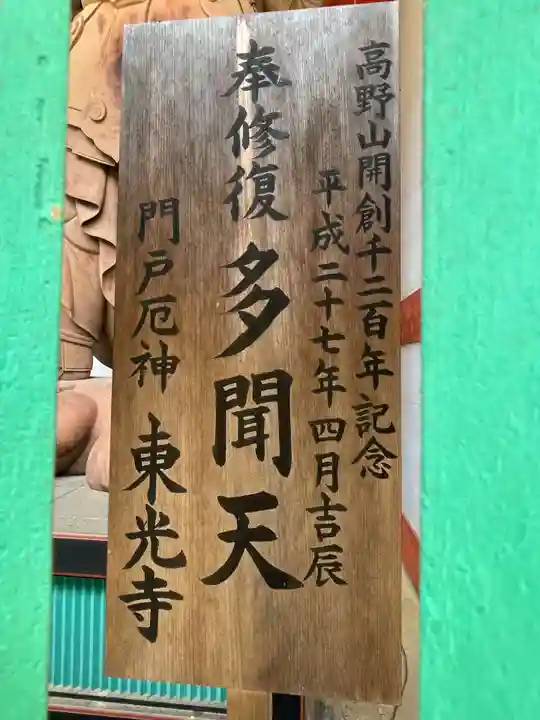 高野山開創千二百年記念
平成二十七年四月吉辰
奉修復 多聞天
門戸厄神 東光寺